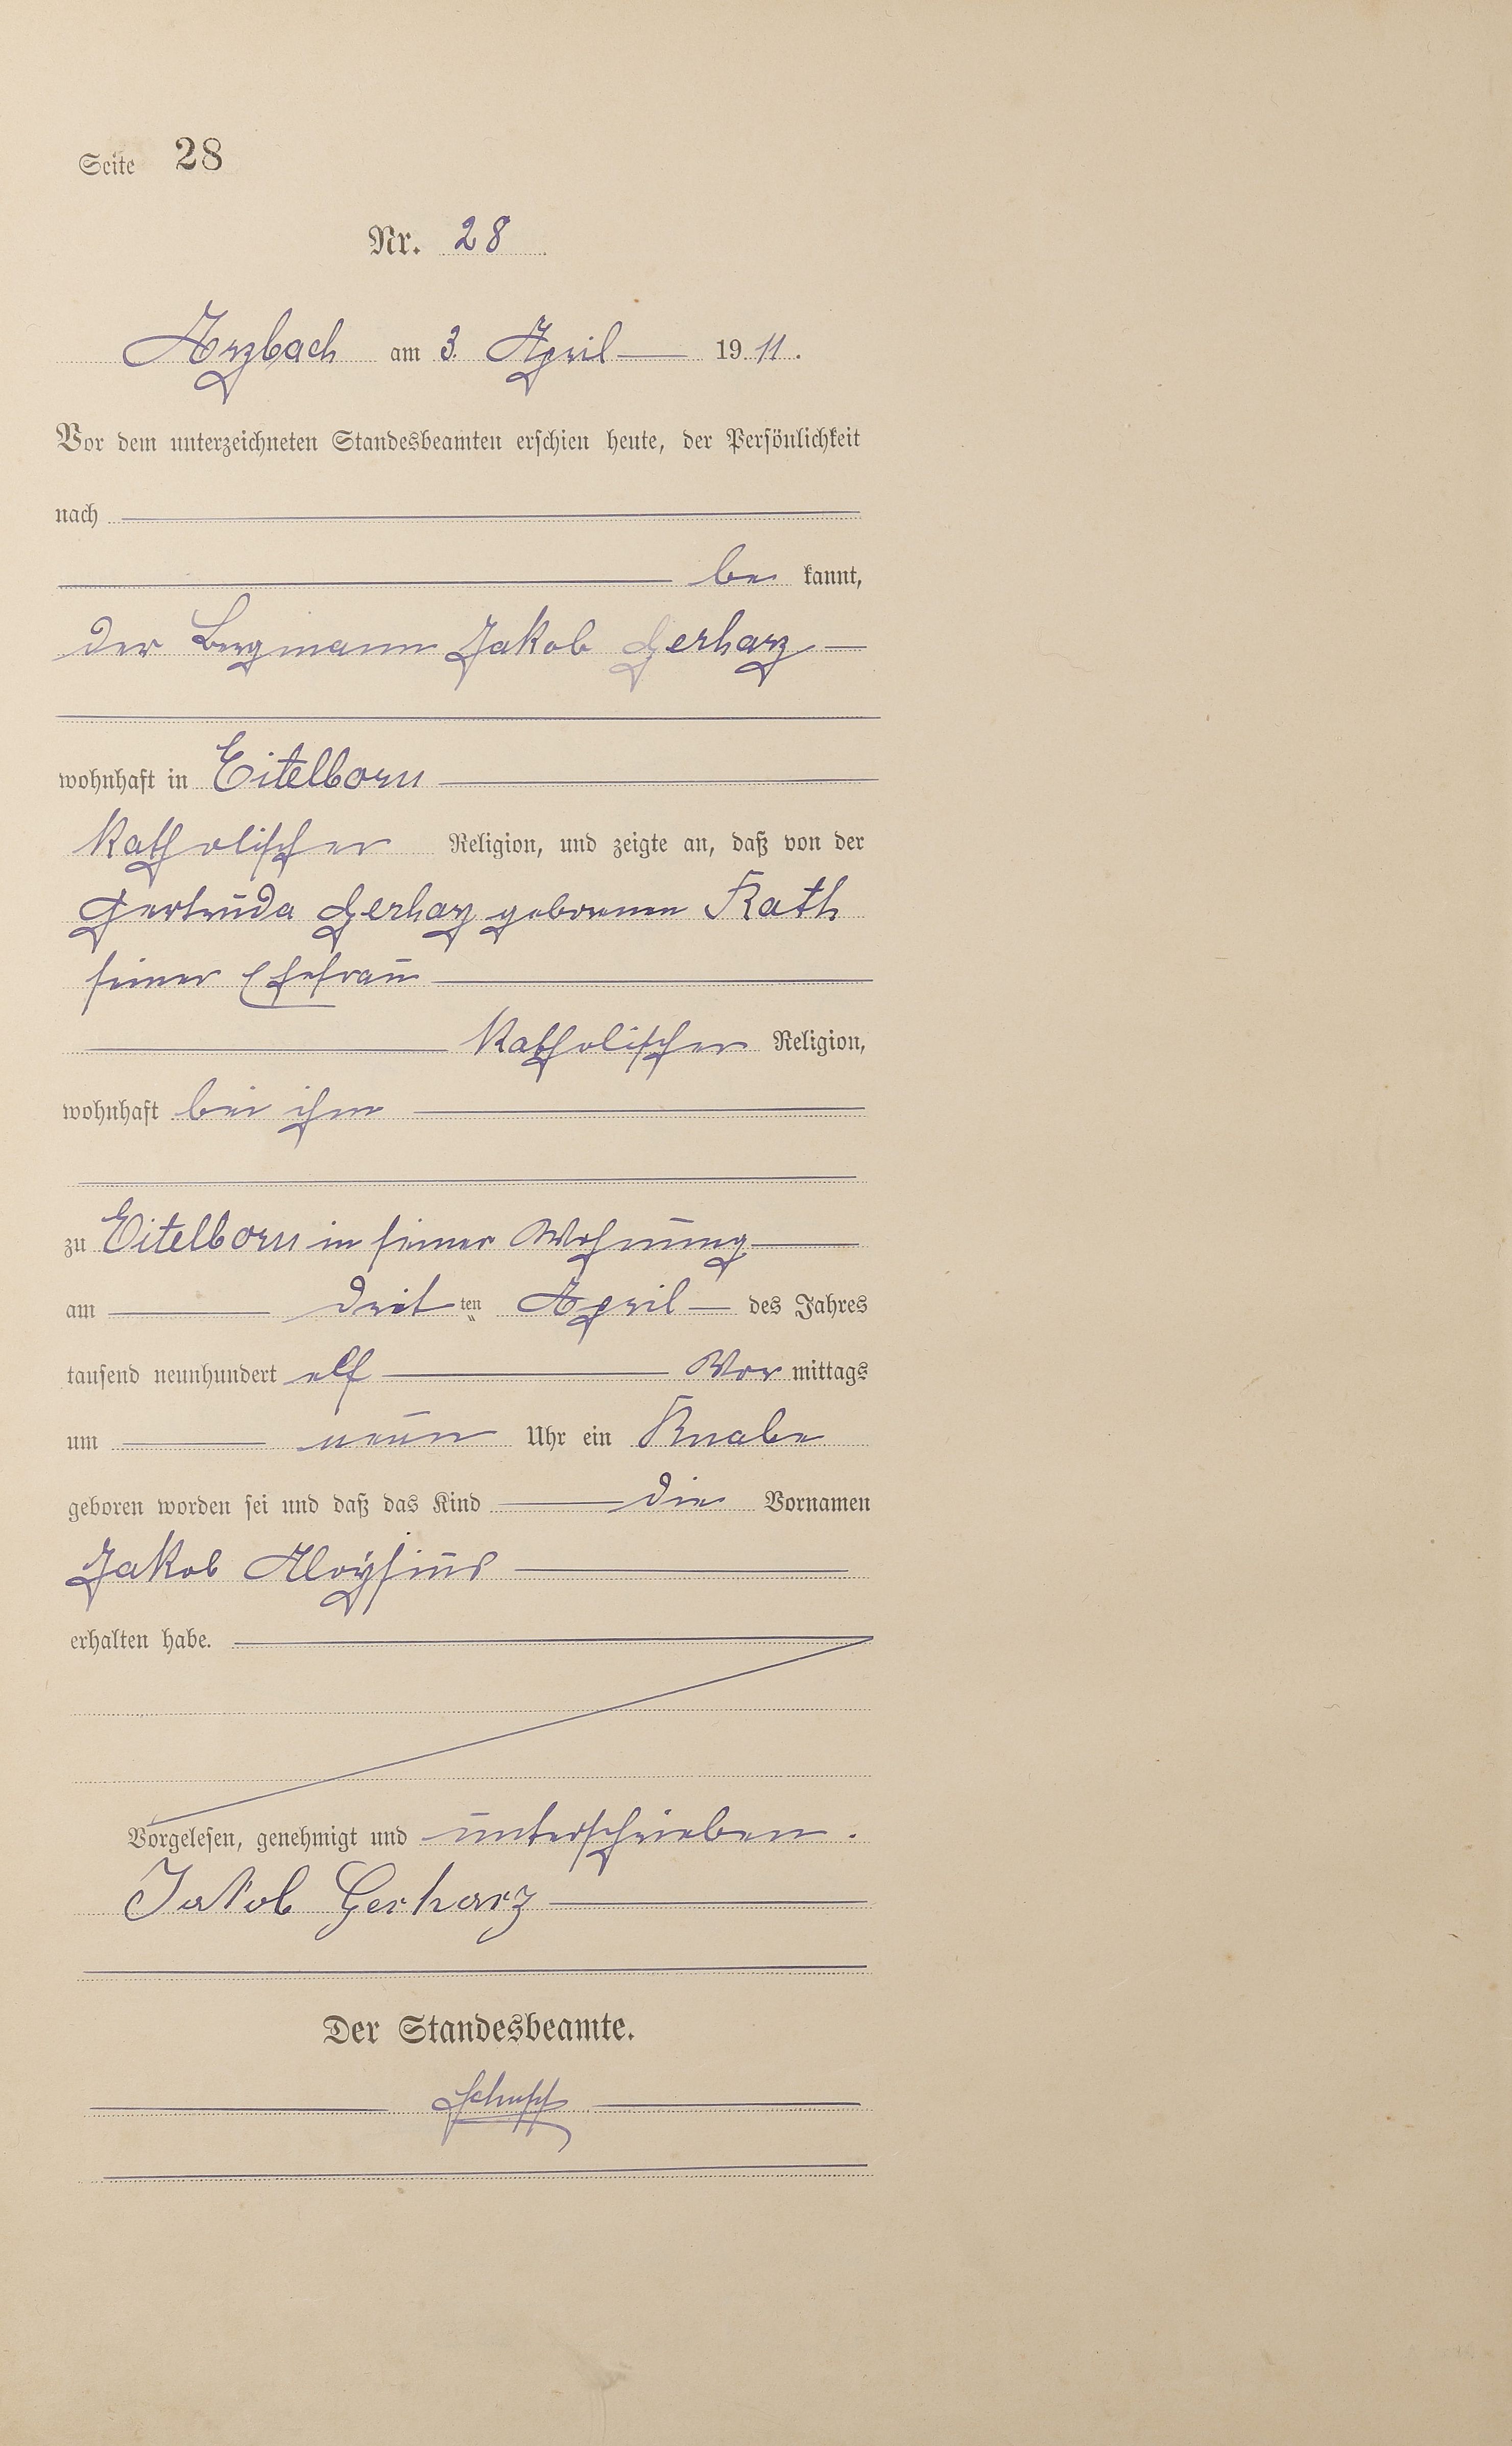 Seite 28
Nr. 28
Arzbach am 3. April 1911.
Vor dem unterzeichneten Standesbeamten erschien heute, der Persönlichkeit
nach
be kannt,
der Bergmann Jakob Gerharz
wohnhaft in Eitelborn
katholischer Religion, und zeigte an, daß von der
Gertruda Gerharz geborenen Kath
seiner Ehefrau
katholischer Religion,
wohnhaft bei ihm
zu Eitelborn in seiner Wohnung
am drit ten April des Jahres
tausend neunhundert elf Vor mittags
um neun Uhr ein Knabe
geboren worden sei und daß das Kind die Vornamen
Jakob Aloysius
erhalten habe.
Vorgelesen, genehmigt und unterschrieben.
Jakob Gerharz
Der Standesbeamte.